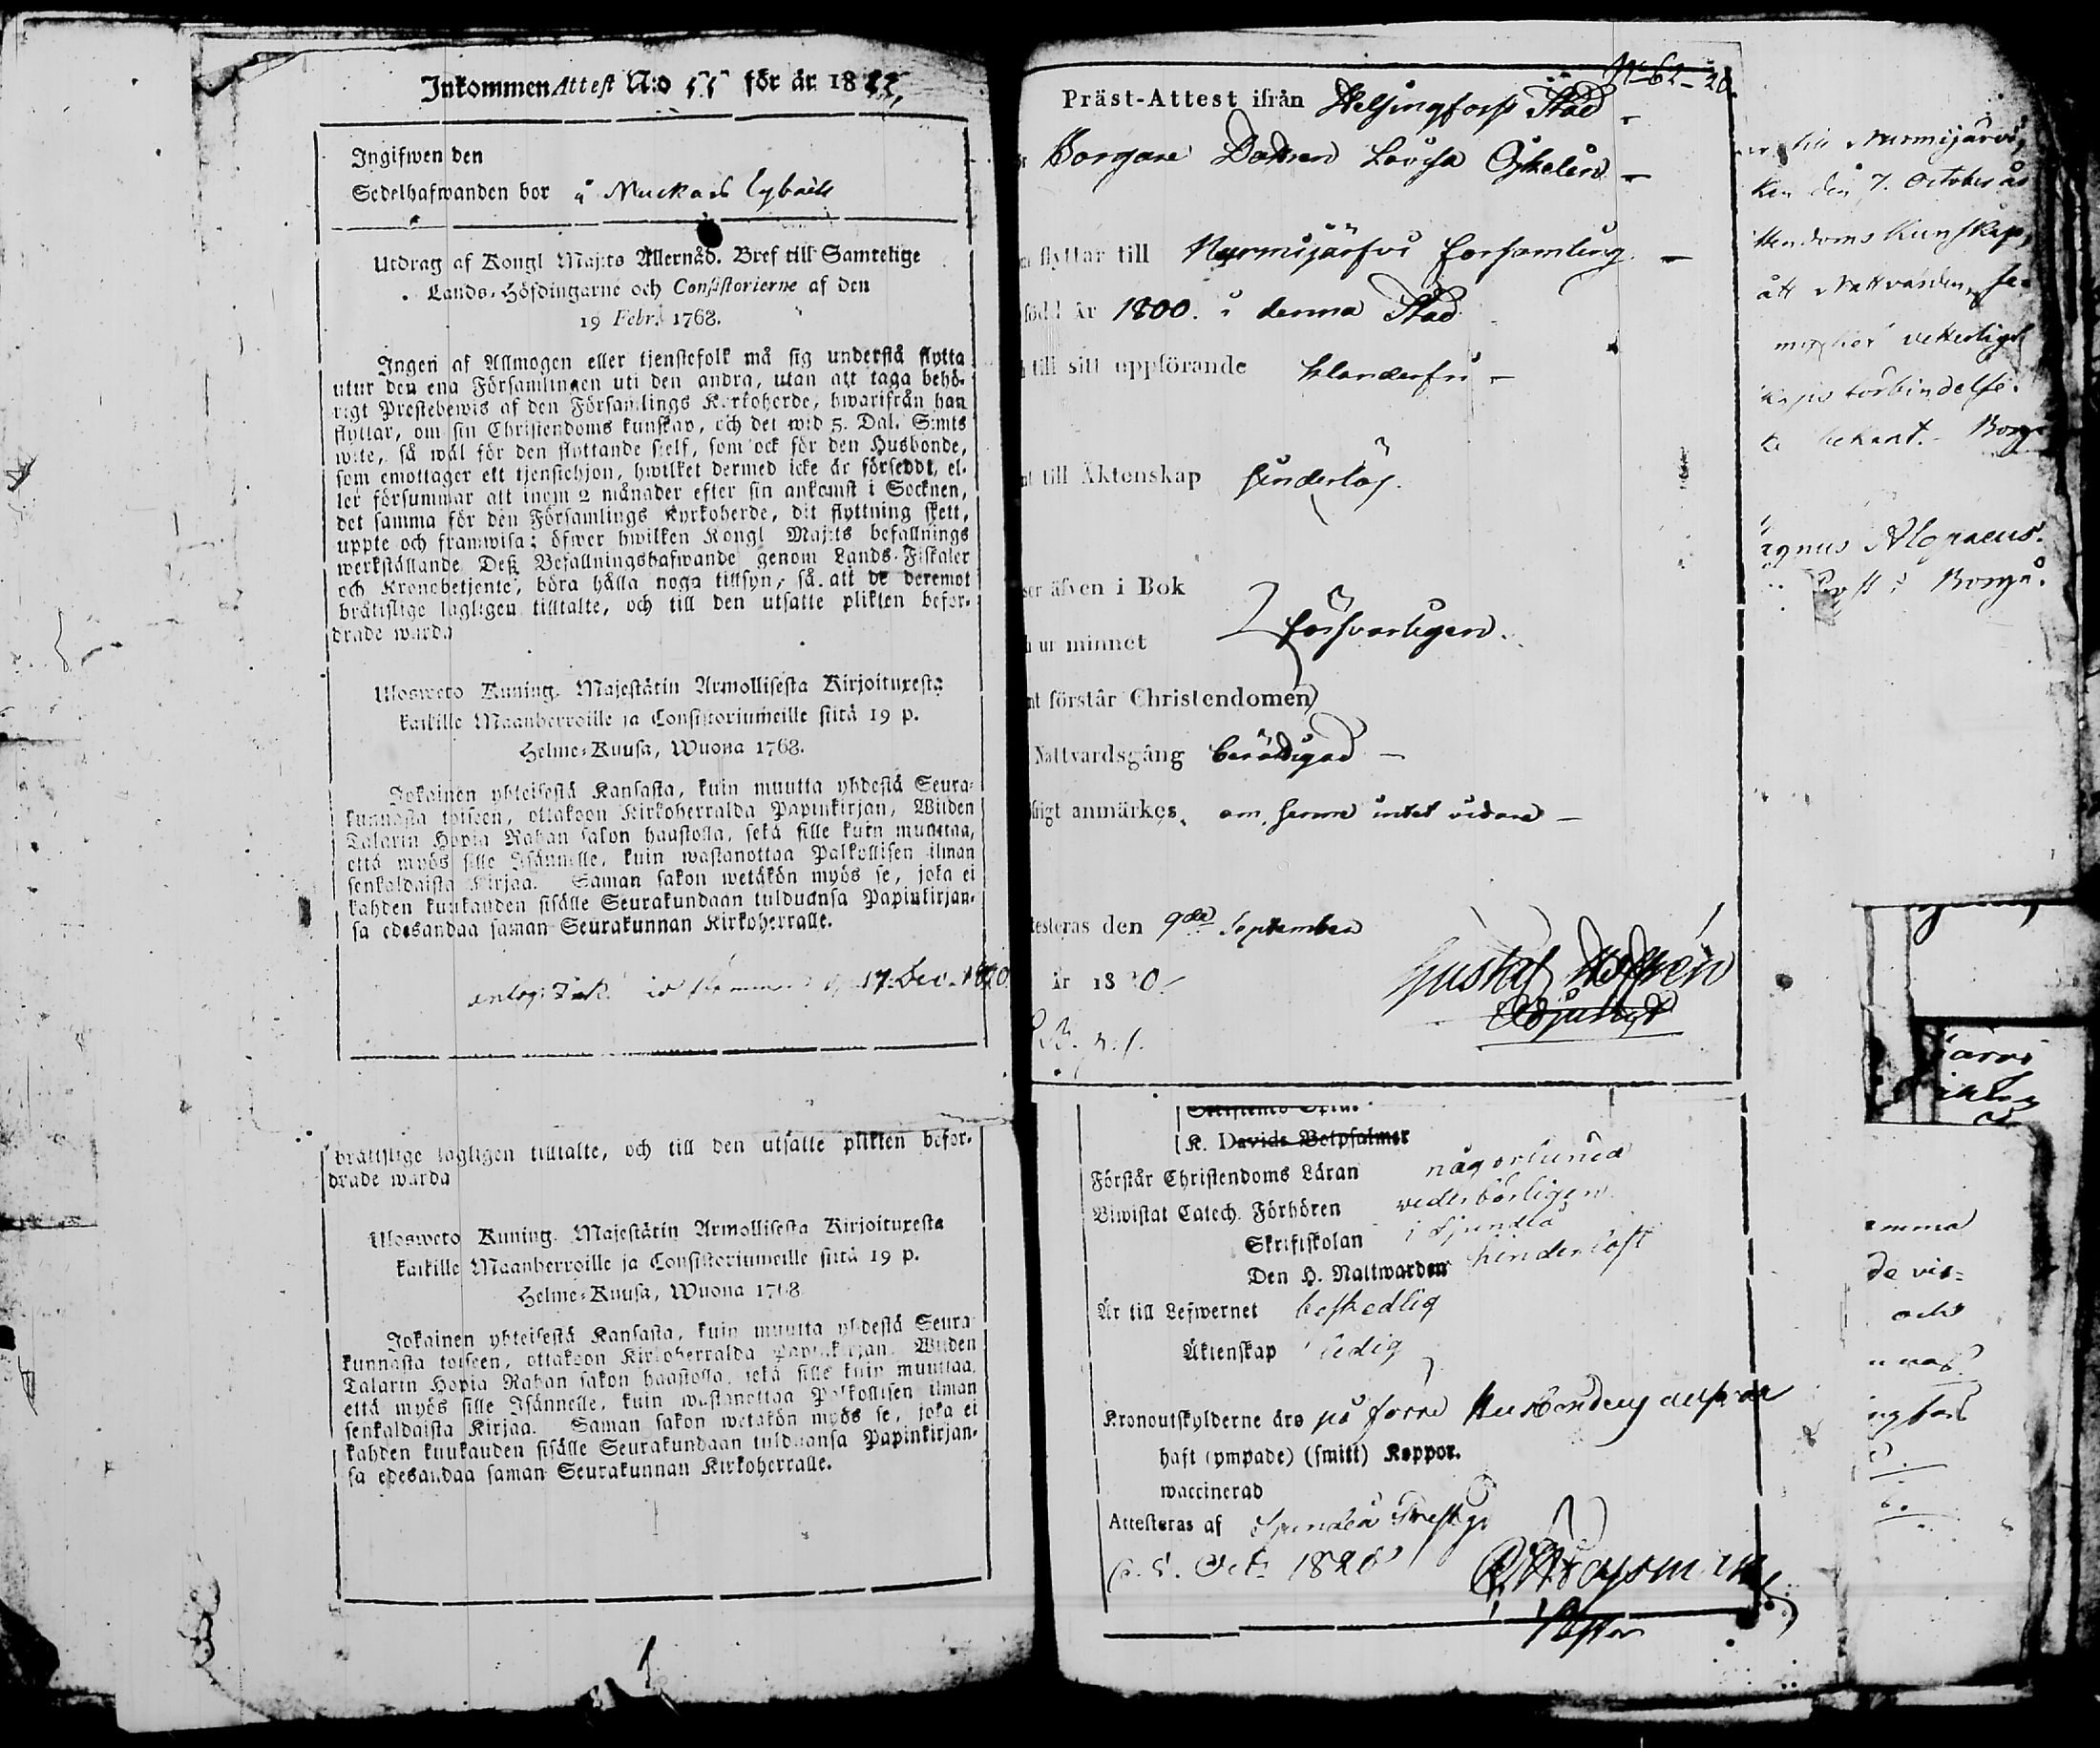 Inkommen Attest N:o 55 för år 18
Ingifwen den
Sedelhafwanden bor å Muckas
Utdrag af Kongl Maj:ts Allernåd. Bref till Samtelige
Lands-Höfdingarne och Consistorierne af den
19 Febr. 1768.
Ingen af Allmogen eller tjenstefolk må sig understå flytta
utur den ena Församlingen uti den andra, utan att taga behö-
rigt Prestebewis af den Församlings Kyrkoherde, hwarifrån han
flyttar, om sin Christendoms kunskap, och det wid 5. Dal. S:mts
wite, så wäl för den flyttande sjelf, som ock för den Husbonde,
som emottager ett tjenstehjon, hwilket dermed icke är försedt, el-
ler försummar att inom 2 månader efter sin ankomst i Socknen,
det samma för den Församlings Kyrkoherde, dit flyttning skett,
uppte och framwisa; öfwer hwilken Kongl Maj:ts befallnings
werkställande Deß Befallningshafwande genom Lands-Fiskaler
och Kronobetjente, böra hålla noga tillsyn, så att de deremot
bråttslige lagligen tilltalte, och till den utsatte plikten befor-
drade warda
Ulosweto Kuning. Majestätin Armollisesta Kirjoituxesta
kaikille Maanherroille ja Consistoriumeille siitä 19 p.
Helme-Kuusa, Wuona 1768.
Jokainen yhteisestä Kansasta, kuin muutta yhdestä Seura-
kunnasta toiseen, ottakoon Kirkoherralda Papinkirjan, Wiiden
Talarin Hopia Rahan sakon haastolla, sekä sille kuin muuttaa,
että myös sille Isännelle, kuin wastanottaa Palkollisen ilman
senkaldaista Kirjaa. Saman sakon wetäkön myös se, joka ei
kahden kuukauden sisälle Seurakundaan tulduansa Papinkirjan-
sa edesandaa saman Seurakunnan Kirkoherralle.
17. Dec. 1820
bråttslige lagligen tilltalte, och till den utsatte plikten befor-
drade warda
Ulosweto Kuning. Majestätin Armollisesta Kirjoituxesta
kaikille Maanherroille ja Consistoriumeille siitä 19 p.
Helme-Kuusa, Wuona 1768
Jokainen yhteisestä Kansasta, kuin muutta yhdestä Seura
kunnasta toiseen, ottakoon Kirkoherralda Papinkirjan, Wiiden
Talarin Hopia Rahan sakon haastolla, sekä sille kuin muuttaa,
että myös sille Isännelle, kuin wastanottaa Palkollisen ilman
senkaldaista Kirjaa. Saman sakon wetäkön myös se, joka ei
kahden kuukauden sisälle Seurakundaan tulduansa Papinkirjan-
sa edesandaa saman Seurakunnan Kirkoherralle.
No 62-20.
Präst-Attest ifrån Helsingfors Stad
Borgare Dottren Lovisa
flyttar till Nurmijärfvi församling.
född år 1800. i denna Stad
till sitt uppförande klanderfri
till Äktenskap hinderlös.
äfven i Bok
ur minnet försvarligen.
förstår Christendomen
Nattvardsgång berättigad
anmärkes, om henne intet vidare
testeras den 9de September
år 1820.
Gustaf
Adjunct
K. Davids Botpsalmer
Förstår Christendoms Läran någorlunda
Biwistat Catech. Förhören vederbörligen
Skriftskolan i Sjundeå
Den H. Nattwarden hinderlöst
Är till Lefwernet beskedlig
Äktenskap ledig
Kronoutskylderne äro på förre Husbondens ansvar
haft (ympade) (smitt) Koppor.
waccinerad
Attesteras af Sjundeå Prestg.
Oct. 1820
till Nurmijärvi,
ken den 7. October
tendoms Kunskap,
ått Nattvarden,
vetterligt
förbindelse.
bekant. Borg
agnus Alopaeus.
i Borgå.
järvi
emma
de vis=
och